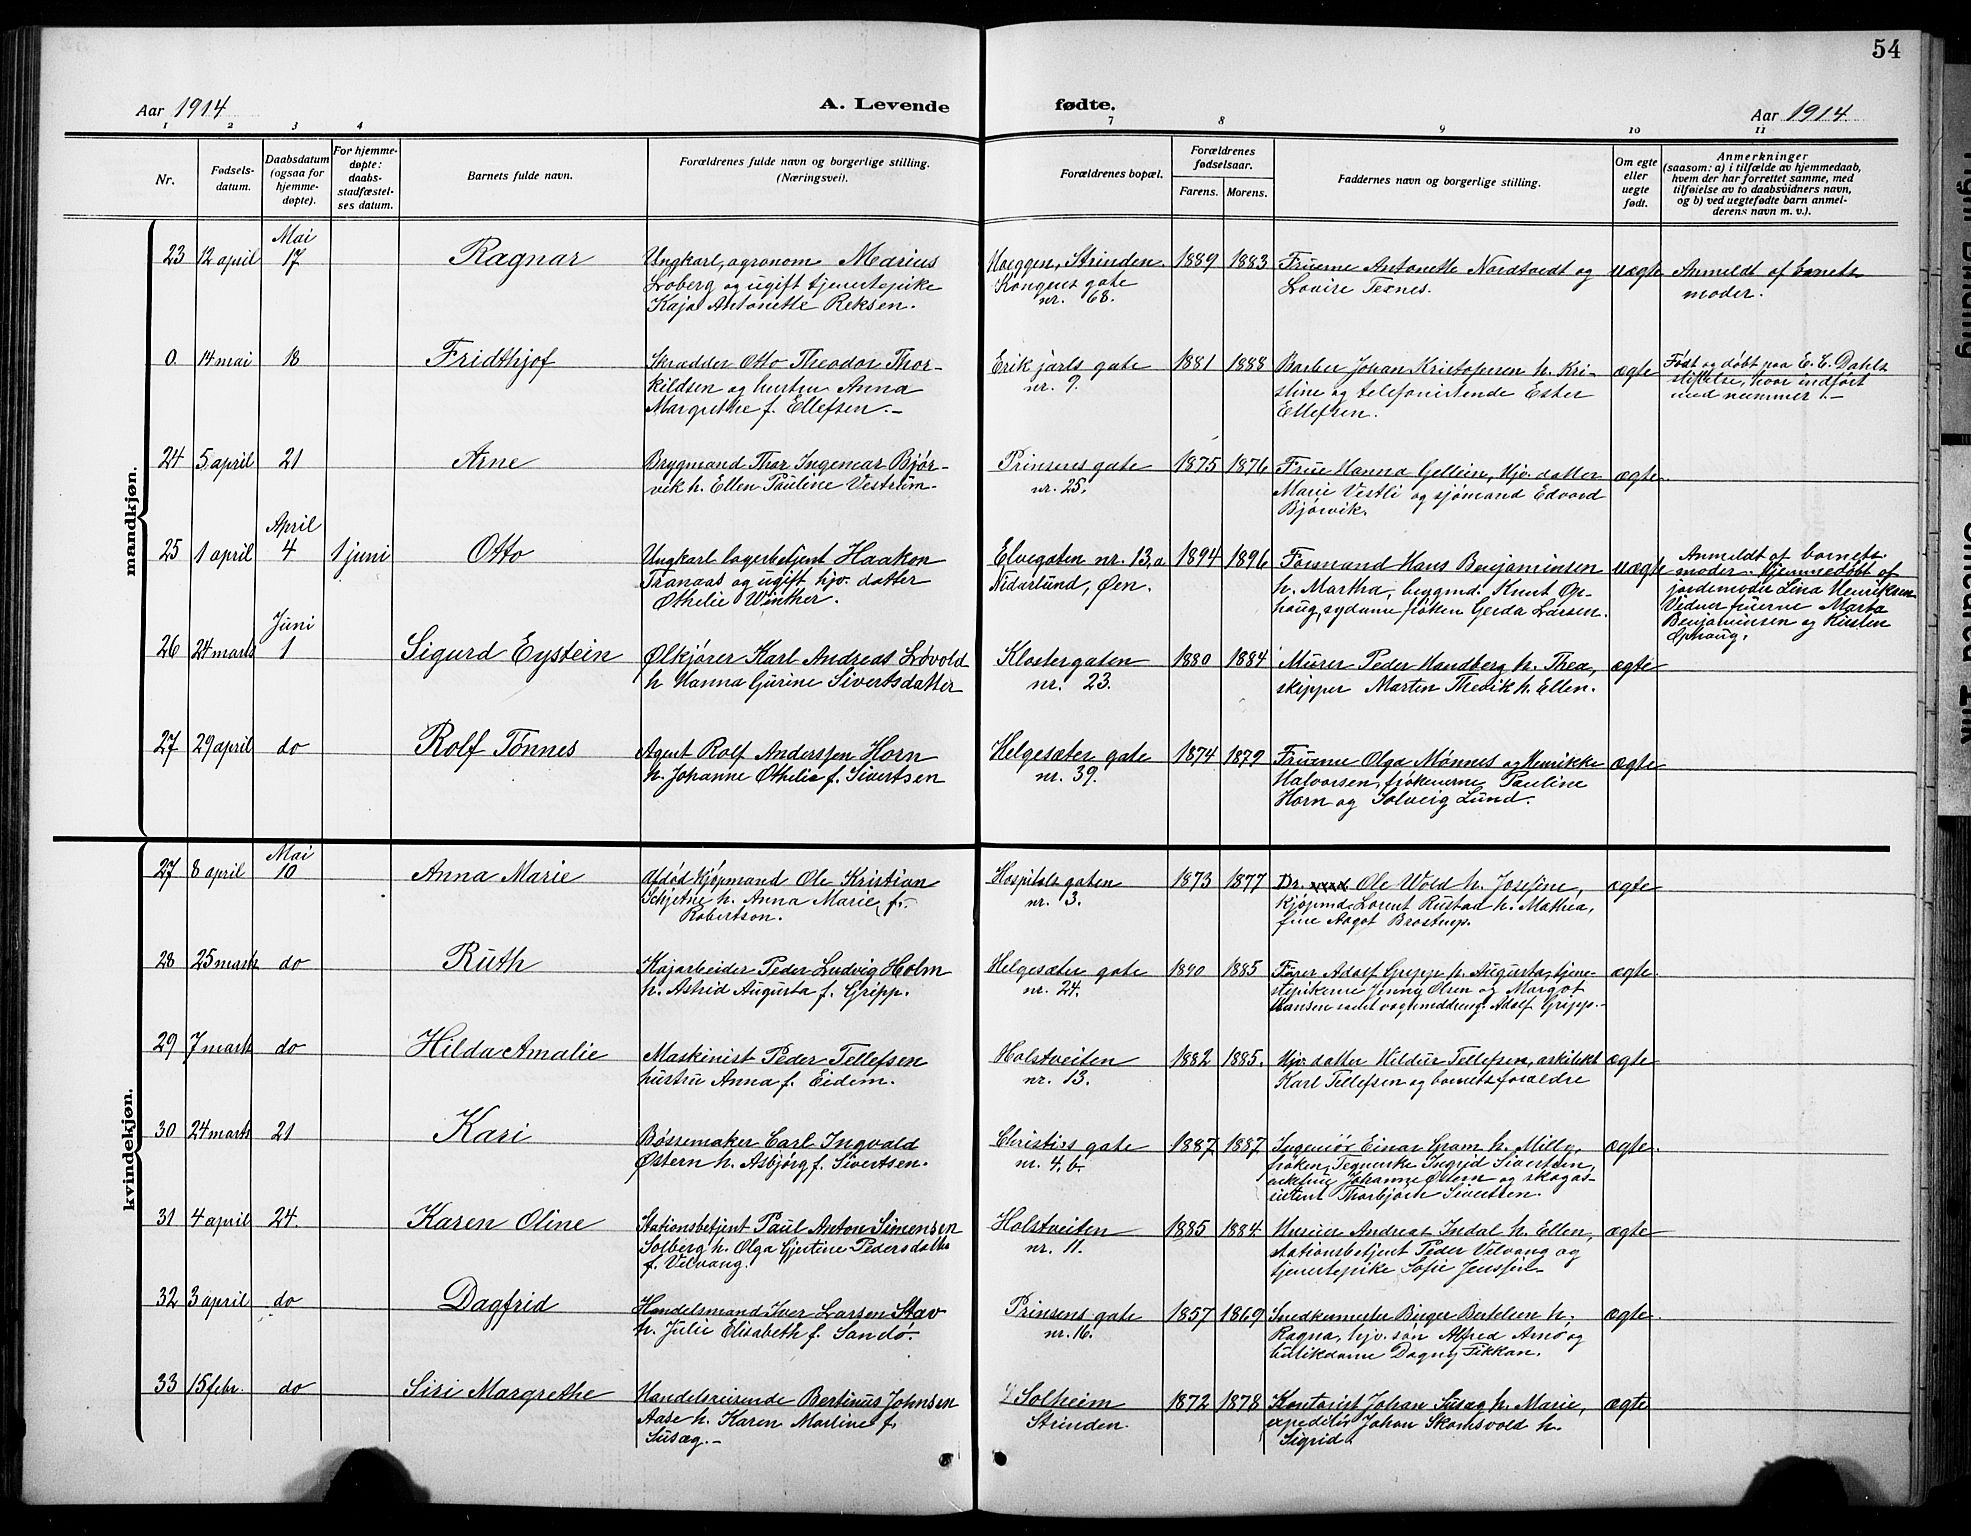 54
Aar 1914
A. Levende fødte.
Aar 1914
1 2 3 4 7 8 9 10 11
Nr.
Fødsels-
datum.
Daabsdatum
(ogsaa for
hjemme-
døpte).
For hjemme-
døpte:
daabs-
stadfæstel-
ses datum.
Barnets fulde navn.
Forældrenes fulde navn og borgerlige stilling.
(Næringsvei).
Forældrenes bopæl.
Forældrenes
fødselsaar.
Farens. Morens.
Faddernes navn og borgerlige stilling.
Om egte
eller
uegte
født.
Anmerkninger
(saasom: a) i tilfælde av hjemmedaab,
hvem der har forrettet samme, med
tilføielse av to daabsvidners navn,
og b) ved uegtefødte barn anmel-
derens navn m. v.).
mandkjøn.
23 12 april Mai 17 Ragnar
Ungkarl, agronom Marius
Loberg og ugift tjenestepike
Kaja Antonette Reksen.
Hoeggen, Strinden
Kongens gate
nr. 68.
1889 1883
Fruerne Antonette Nordtvedt og
Lovise Texnes.
uægte
Anmeldt af barnets
moder.
0 14 mai 18 Fridthjof
Skrædder Otto Theodor Thor-
kildsen og hustru Anna
Margrethe f. Ellefsen.
Erik jarls gate
nr. 9.
1881 1888
Barber Johan Kristofersen h. Kri-
stine og telefonistende Ester
Ellefsen.
ægte
Født og døbt paa E. C. Dahls
stiftelse, hvor indført
med nummer 1.
24 5 april 21 Arne
Brygmand Thor Ingemar Bjør-
vik h. Ellen Pauline Vestrum.
Prinsens gate
nr. 25.
1875 1876
Frue Hanna Gellein, hjv. datter
Marie Vestli og sjømand Edvard
Bjørvik.
ægte
25 1 april April 4 1 juni Otto
Ungkarl lagerbetjent Haakon
Tranaas og ugift hjv. datter
Othelie Winther.
Elvegaten nr. 13,a
Nidarlund, Øen.
1894 1896
Formand Hans Benjaminsen
h. Martha, brygmd. Knut Op-
haug, sydame frøken Gerda Larsen.
uægte
Anmeldt af barnets
moder. Hjemmedøbt af
jordemoder Lina Henriksen
Vidner fruerne Marta
Benjaminsen og Kirsten
Ophaug.
26 24 marts Juni 1 Sigurd Eystein
Ølkjører Karl Andreas Løvold
h Hanna Gurine Sivertsdatter
Klostergaten
nr. 23.
1880 1884
Murer Peder Handberg h. Thea,
skipper Marten Thevik h. Ellen.
ægte
27 29 april do Rolf Tønnes
Agent Rolf Anderssen Horn
h. Johanne Othelie f. Sivertsen
Helgesæter gate
nr. 39.
1874 1879
Fruerne Olga Mønnes og Henrikke
Halvorsen, frøkenerne Pauline
Horn og Solveig Lund.
ægte
kvindekjøn.
27 8 april Mai 10 Anna Marie
Afdød Kjøpmand Ole Kristian
Schjetne h. Anna Marie f.
Robertson.
Hospitals gaten
nr. 3.
1873 1877
Dr. Ole Wold h. Josefine,
kjøpmd. Lorent Rustad h. Mathea,
frue Aagot Brostrup.
ægte
28 25 marts do Ruth
Kajarbeider Peder Ludvig Holm
h. Astrid Augusta f. Gripp.
Helgesæter gate
nr. 24.
1885
Fører Adolf Gripp h. Augusta, tjene-
stepikerne Jenny Olsen og Margot
Hansen samt vognmddreng. Adolf Gripp.
ægte
29 7 marts do Hilda Amalie
Maskinist Peder Tellefsen
hustru Anna f. Eidem.
Holstveiten
nr. 13.
1882 1885.
Hjv datter Hildur Tellefsen, arkitekt
Karl Tellefsen og barnets forældre
ægte
30 24 marts 21 Kari
Børsemaker Carl Ingvald
Østern h. Asbjørg f. Sivertsen.
Christies gate
nr. 4, b.
1887 1887
Ingeniør Einar Gram h. Milly,
frøken Tegnerske Ingrid Sivertsen,
enkefrue Johanne Østern og skogas-
sistent Thorbjørn Sivertsen.
ægte.
31 4 april 24 Karen Oline
Stationsbetjent Paul Anton Simensen
Solberg h. Olga Gjertine Pedersdatter
f. Velvang.
Holstveiten
nr. 11.
1885 1884
Murer Andreas Indal h. Ellen,
stationsbetjent Peder Velvang og
tjenestepike Sofie Jenssen
ægte
32 3 april do Dagfrid
Handelsmand Iver Larsen Stav
h. Julie Elisabeth f. Sandø.
Prinsens gate
nr. 16.
1857 1869
Snedkermester Birger Bertelsen h.
Ragna, hjv. søn Alfred Arnø og
butikdame Dagny Fikkan.
ægte.
33 15 febr. do Siri Margrethe
Handelsreisende Bertinus Johnsen
Aase h. Karen Martine f.
Susæg.
Solheim
Strinden.
1872 1878
Kontorist Johan Susæg h. Marie,
expeditør Johan Skomsvold h.
Sigrid.
ægte